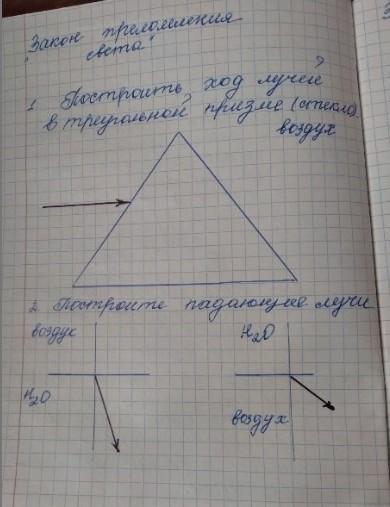 "Закон преломления
света"
1. Построить ход лучей
в треугольной призме (стекло).
воздух
2. Построите падающие лучи
воздух
H₂O
H₂O
воздух